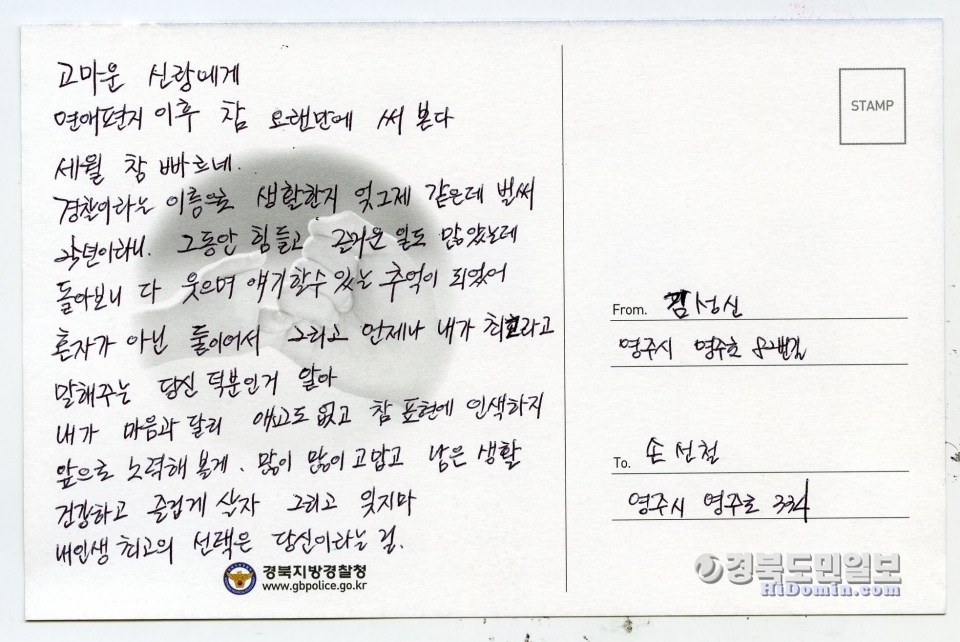 고마운 신랑에게
연애편지 이후 참 오랜만에 써 본다
세월 참 빠르네.
경찰이라는 이름으로 생활한지 엊그제 같은데 벌써
년이라니. 그동안 힘들고 즐거운 일도 많았는데
돌아보니 다 웃으며 얘기할수 있는 추억이 되었어
혼자가 아닌 둘이어서 그리고 언제나 내가 최고라고
말해주는 당신 덕분인거 알아
내가 마음과 달리 애교도 없고 참 표현에 인색하지
앞으로 노력해 볼게. 많이 많이 고맙고 남은 생활
건강하고 즐겁게 살자 그리고 잊지마
내인생 최고의 선택은 당신이라는 걸.
경북지방경찰청
www.gbpolice.go.kr
STAMP
From. 김성신
영주시 영주로
To. 손선철
영주시 영주로 334
경북도민일보
HiDomin.com